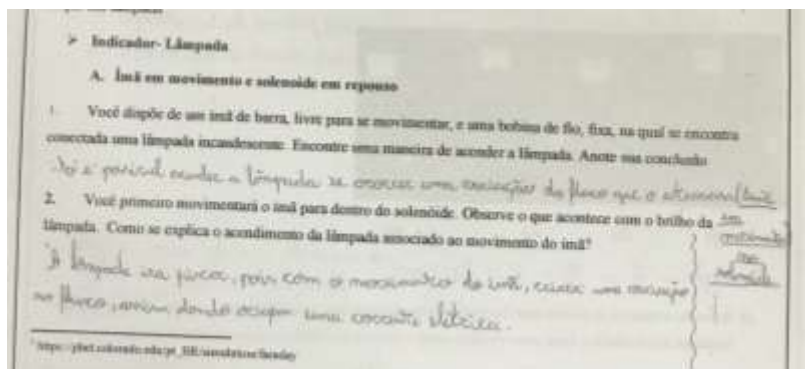 ➤ Indicador- Lâmpada
A. Ímã em movimento e solenoide em repouso
1. Você dispõe de um imã de barra, livre para se movimentar, e uma bobina de fio, fixa, na qual se encontra
conectada uma lâmpada incandescente. Encontre uma maneira de acender a lâmpada. Anote sua conclusão
a lâmpada se ocorrer uma variação do fluxo que o
2. Você primeiro movimentará o imã para dentro do solenóide. Observe o que acontece com o brilho da
lâmpada. Como se explica o acendimento da lâmpada associado ao movimento do imã?
A lâmpada ira piscar, pois com o movimento do imã, uma variação
no fluxo, assim dando uma corrente elétrica.